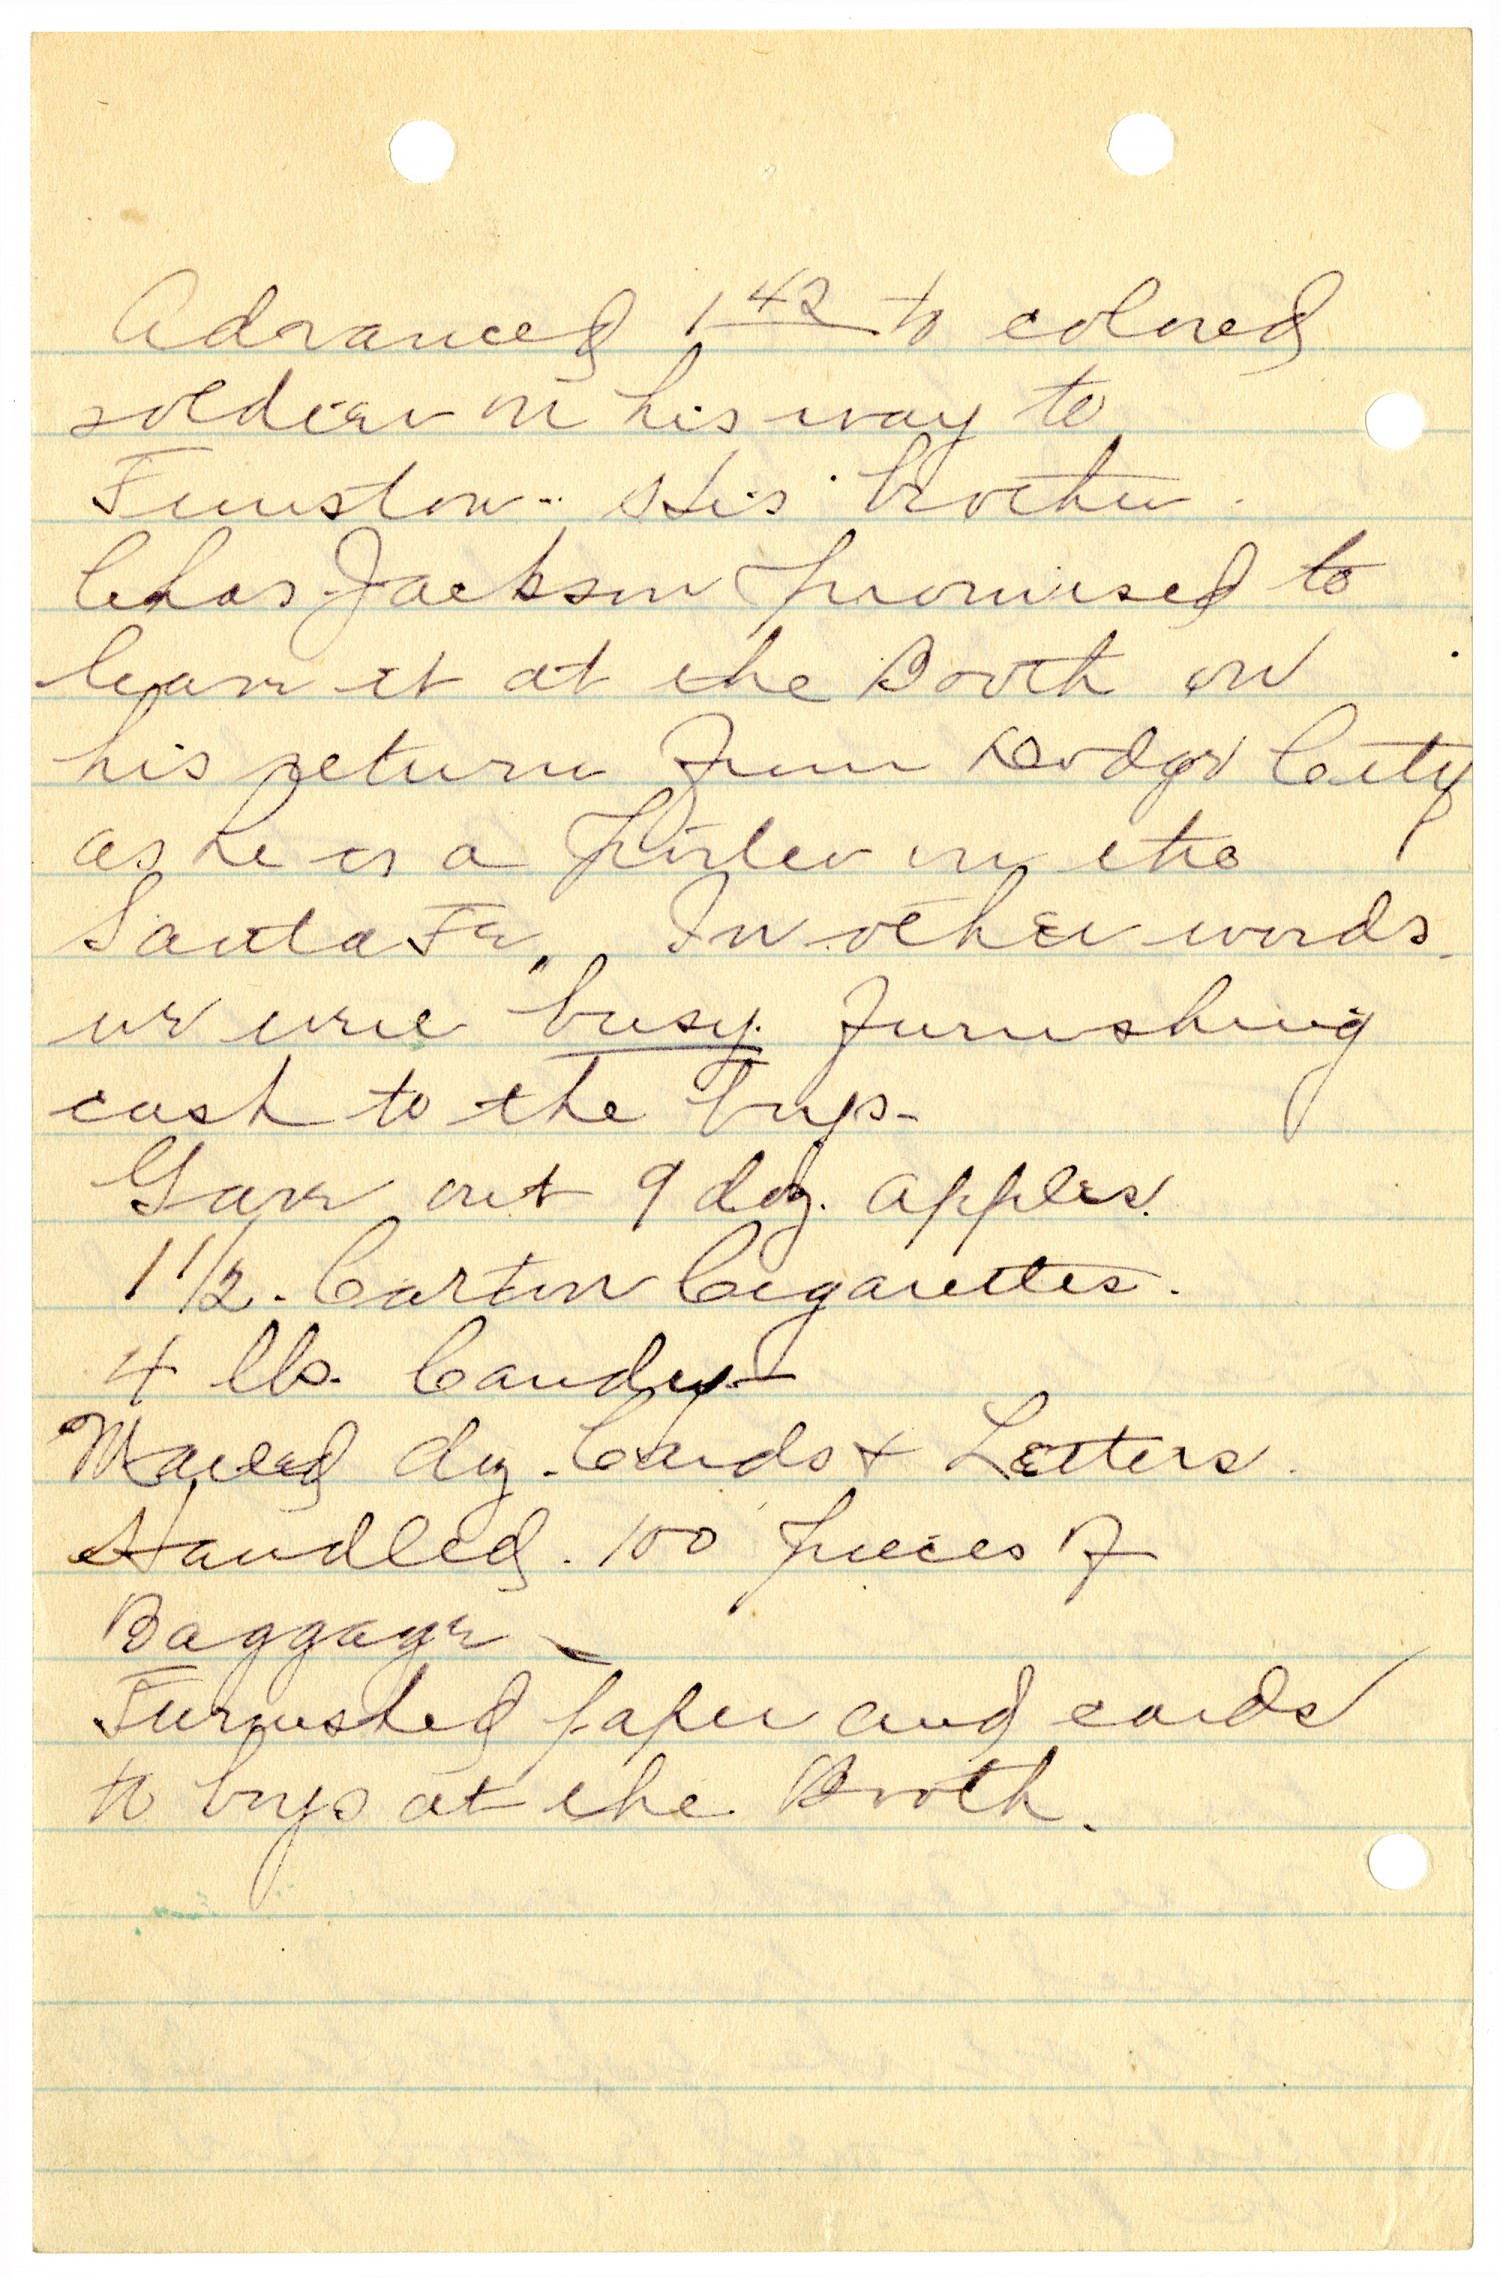 Advanced 1 42 to colored
soldier on his way to
Funston. His brother
Chas Jackson promised to
leave it at the Booth on
his return from Dodge City
as he is a porter on the
Santa Fe. In other words
we were "busy" furnishing
cash to the boys -
Gave out 9 doz. apples.
1 1/2. Carton Cigarettes.
4 lbs. Candy -
Mailed doz. Cards + Letters.
Handled. 100 pieces of
Baggage -
Furnished paper and cards
to boys at the Booth.